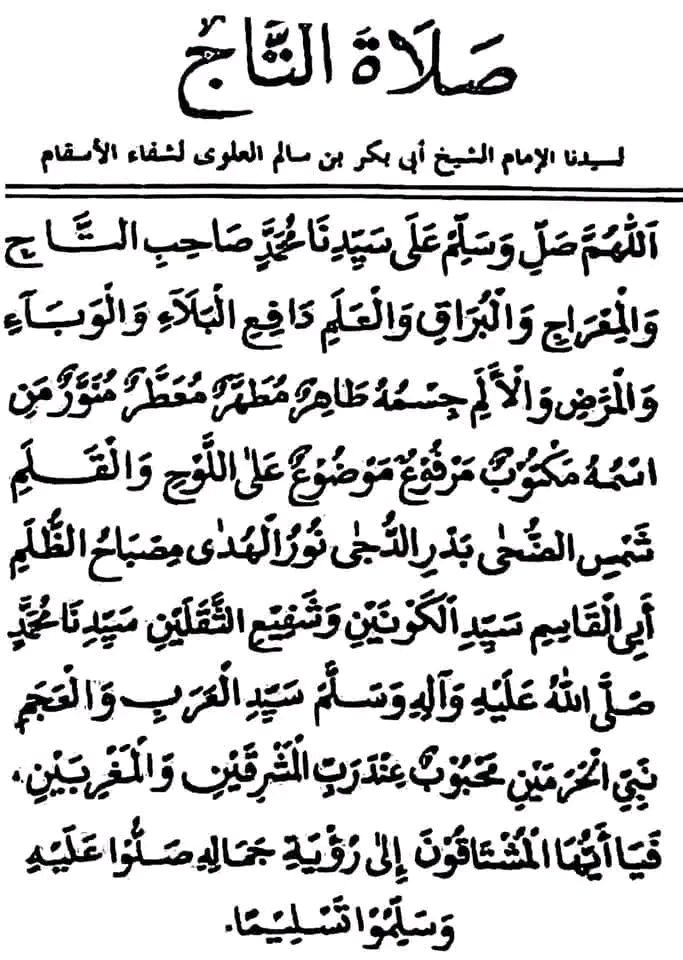 صَلَاةُ التَّاجِ
لسيدنا الإمام الشيخ أبي بكر بن سالم العلوى لشفاء الأسقام
اَللّٰهُمَّ صَلِّ وَسَلِّمْ عَلَى سَيِّدِنَا مُحَمَّدٍ صَاحِبِ التَّاجِ
وَالْمِعْرَاجِ وَالْبُرَاقِ وَالْعَلَمِ دَافِعِ الْبَلَآءِ وَالْوَبَآءِ
وَالْمَرَضِ وَالْأَلَمِ جِسْمُهُ طَاهِرٌ مُطَهَّرٌ مُعَطَّرٌ مُنَوَّرٌ مَنِ
اسْمُهُ مَكْتُوْبٌ مَرْفُوْعٌ مَوْضُوْعٌ عَلَى اللَّوْحِ وَالْقَلَمِ
شَمْسِ الضُّحٰى بَدْرِ الدُّجٰى نُوْرُ الْهُدٰى مِصْبَاحُ الظُّلَمِ
أَبِى الْقَاسِمِ سَيِّدِ الْكَوْنَيْنِ وَشَفِيْعِ الثَّقَلَيْنِ سَيِّدِنَا مُحَمَّدٍ
صَلَّى اللّٰهُ عَلَيْهِ وَآلِهِ وَسَلَّمَ سَيِّدِ الْعَرَبِ وَالْعَجَمِ
نَبِيِّ الْحَرَمَيْنِ مَحْبُوْبٌ عِنْدَ رَبِّ الْمَشْرِقَيْنِ وَالْمَغْرِبَيْنِ.
فَيَا أَيُّهَا الْمُشْتَاقُوْنَ إِلٰى رُؤْيَةِ جَمَالِهِ صَلُّوْا عَلَيْهِ
وَسَلِّمُوْا تَسْلِيْمًا.